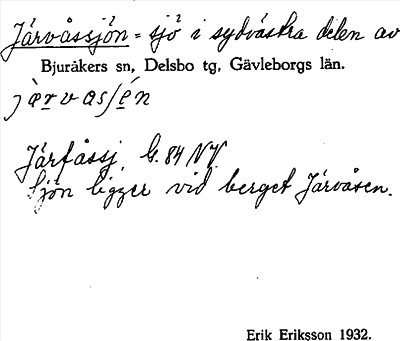 Järvåssjön = sjö i sydvästra delen av
Bjuråkers sn, Delsbo tg, Gävleborgs län.
Järfåssj, G. 84 NV.
Sjön ligger vid berget Järvåsen.
Erik Eriksson 1932.